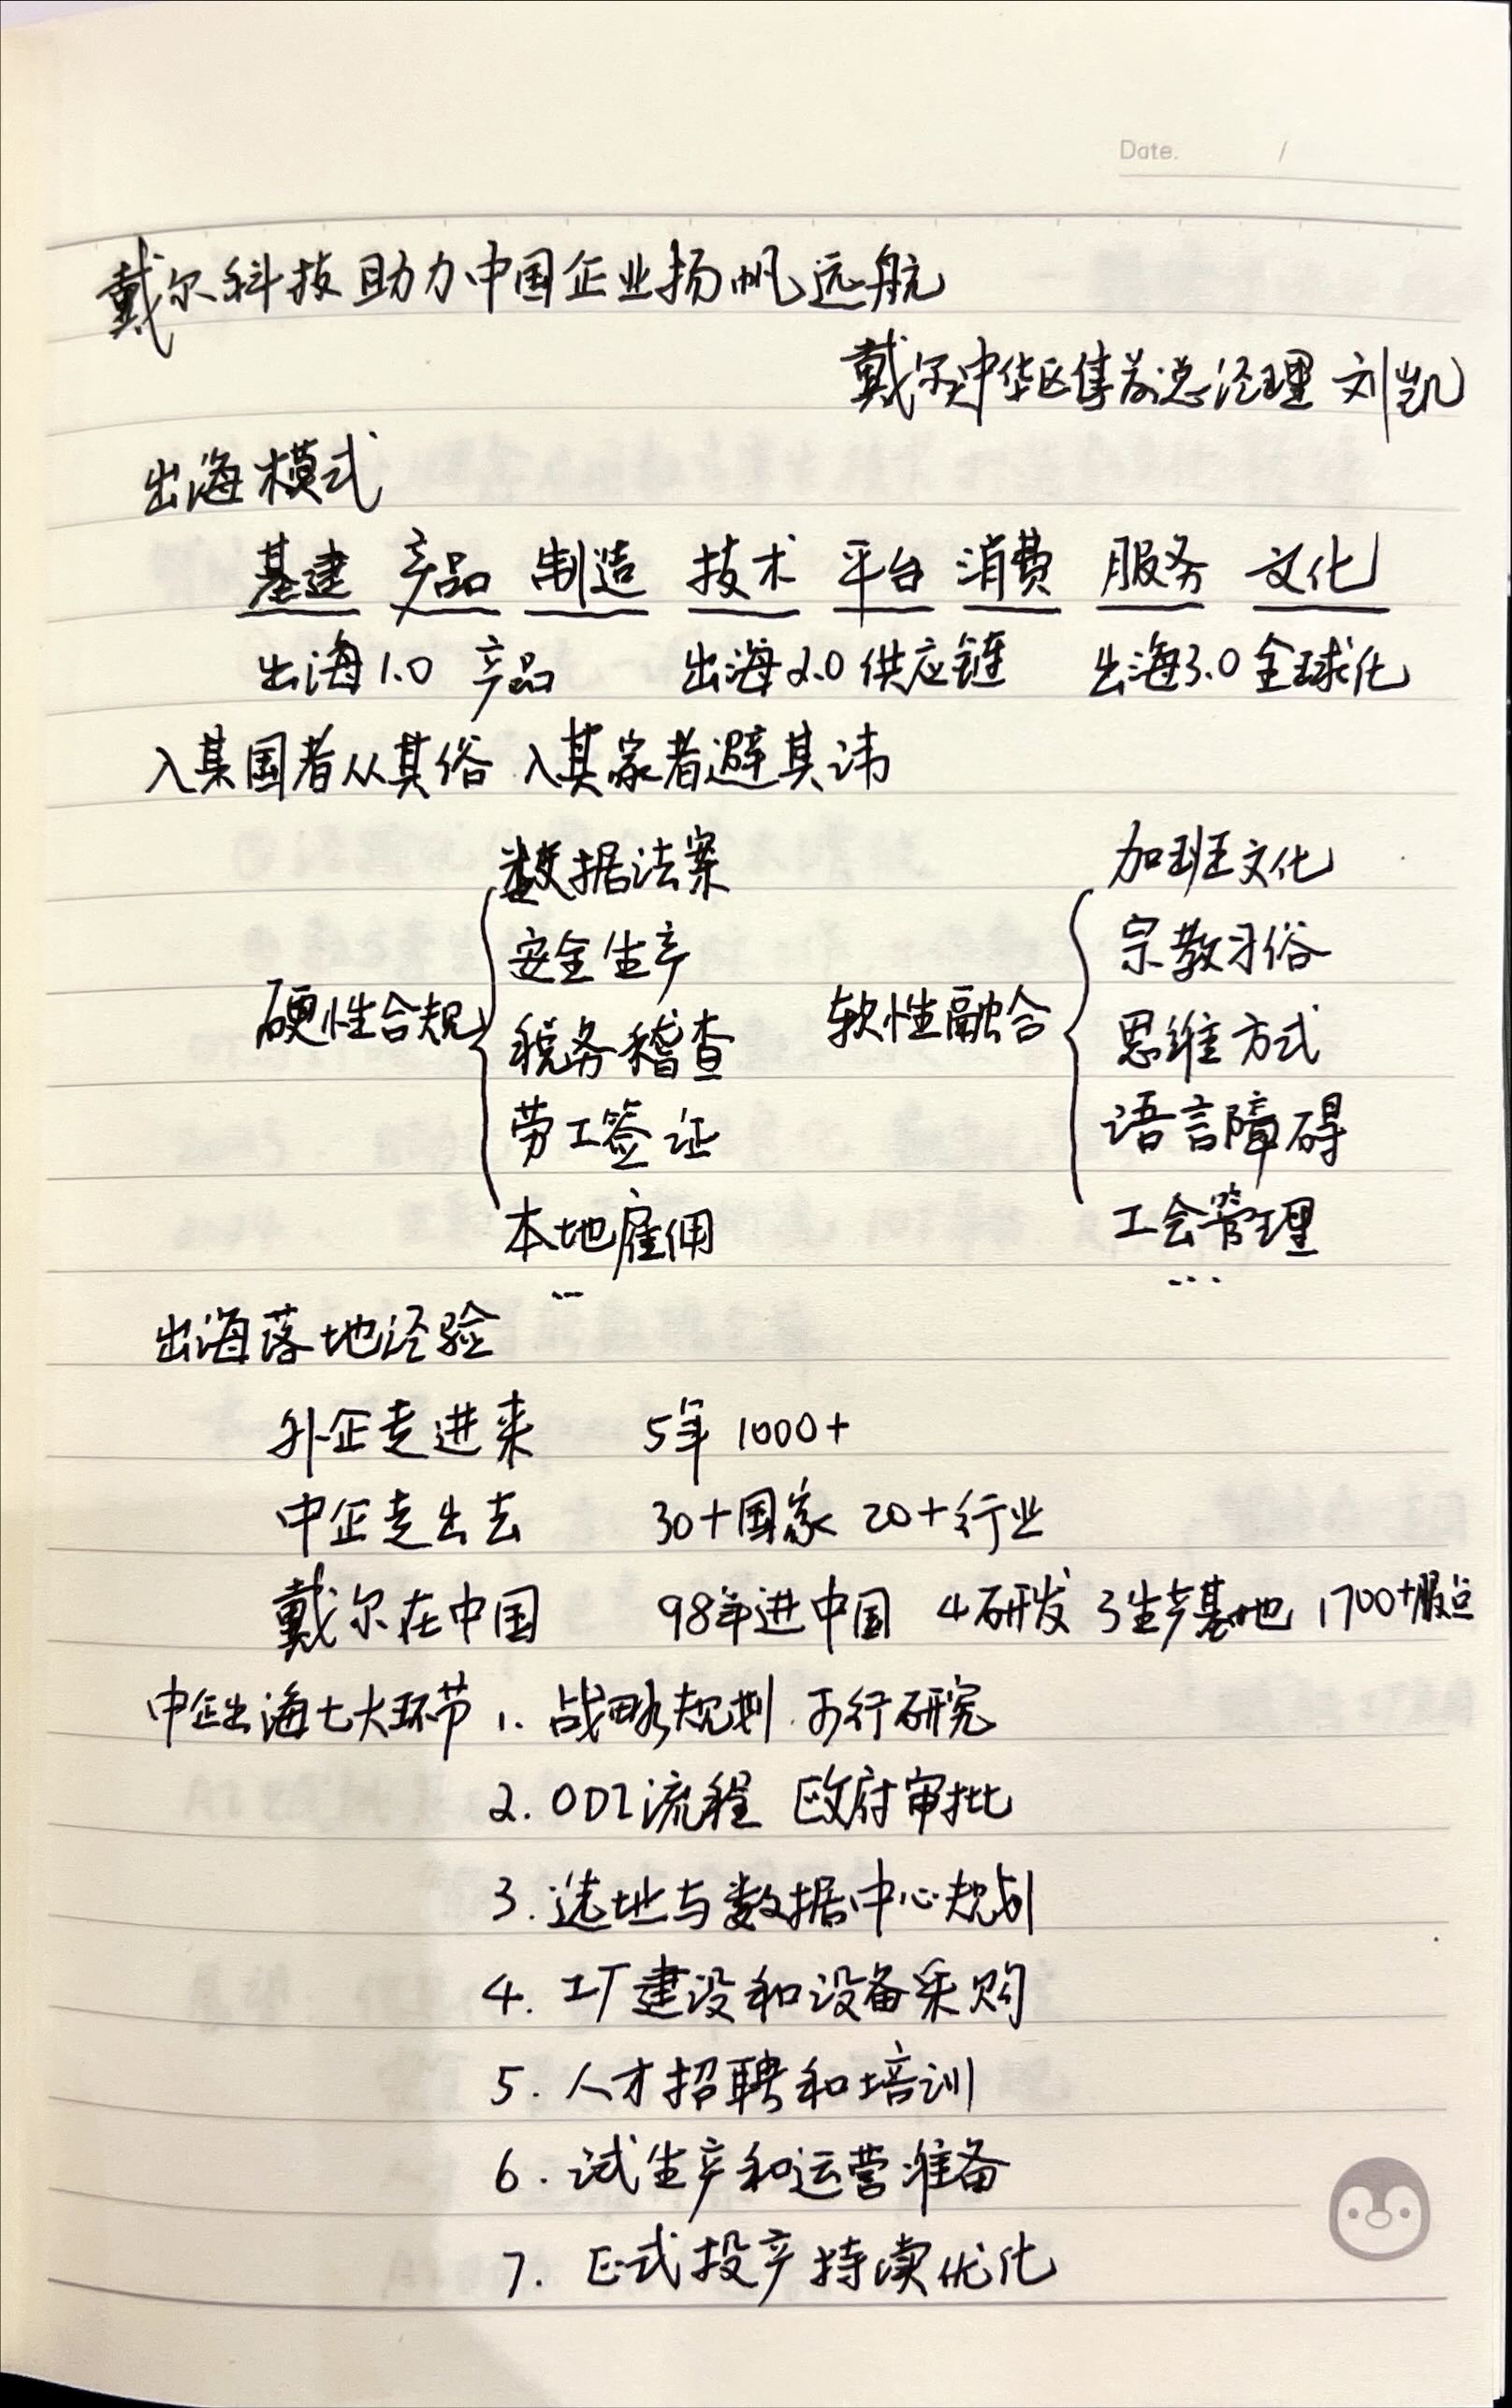 Date. /
戴尔科技助力中国企业扬帆远航
戴尔中华区售前总经理 刘凯
出海模式
基建 产品 制造 技术 平台 消费 服务 文化
出海1.0 产品 出海2.0 供应链 出海3.0 全球化
入其国者从其俗 入其家者避其讳
硬性合规
数据法案
安全生产
税务稽查
劳工签证
本地雇佣
...
软性融合
加班文化
宗教习俗
思维方式
语言障碍
工会管理
...
出海落地经验
外企走进来 5年 1000+
中企走出去 30+国家 20+行业
戴尔在中国 98年进中国 4研发 3生产基地 1700+服点
中企出海七大环节 1. 战略规划 可行研究
2. ODI流程 政府审批
3. 选址与数据中心规划
4. 工厂建设和设备采购
5. 人才招聘和培训
6. 试生产和运营准备
7. 正式投产持续优化